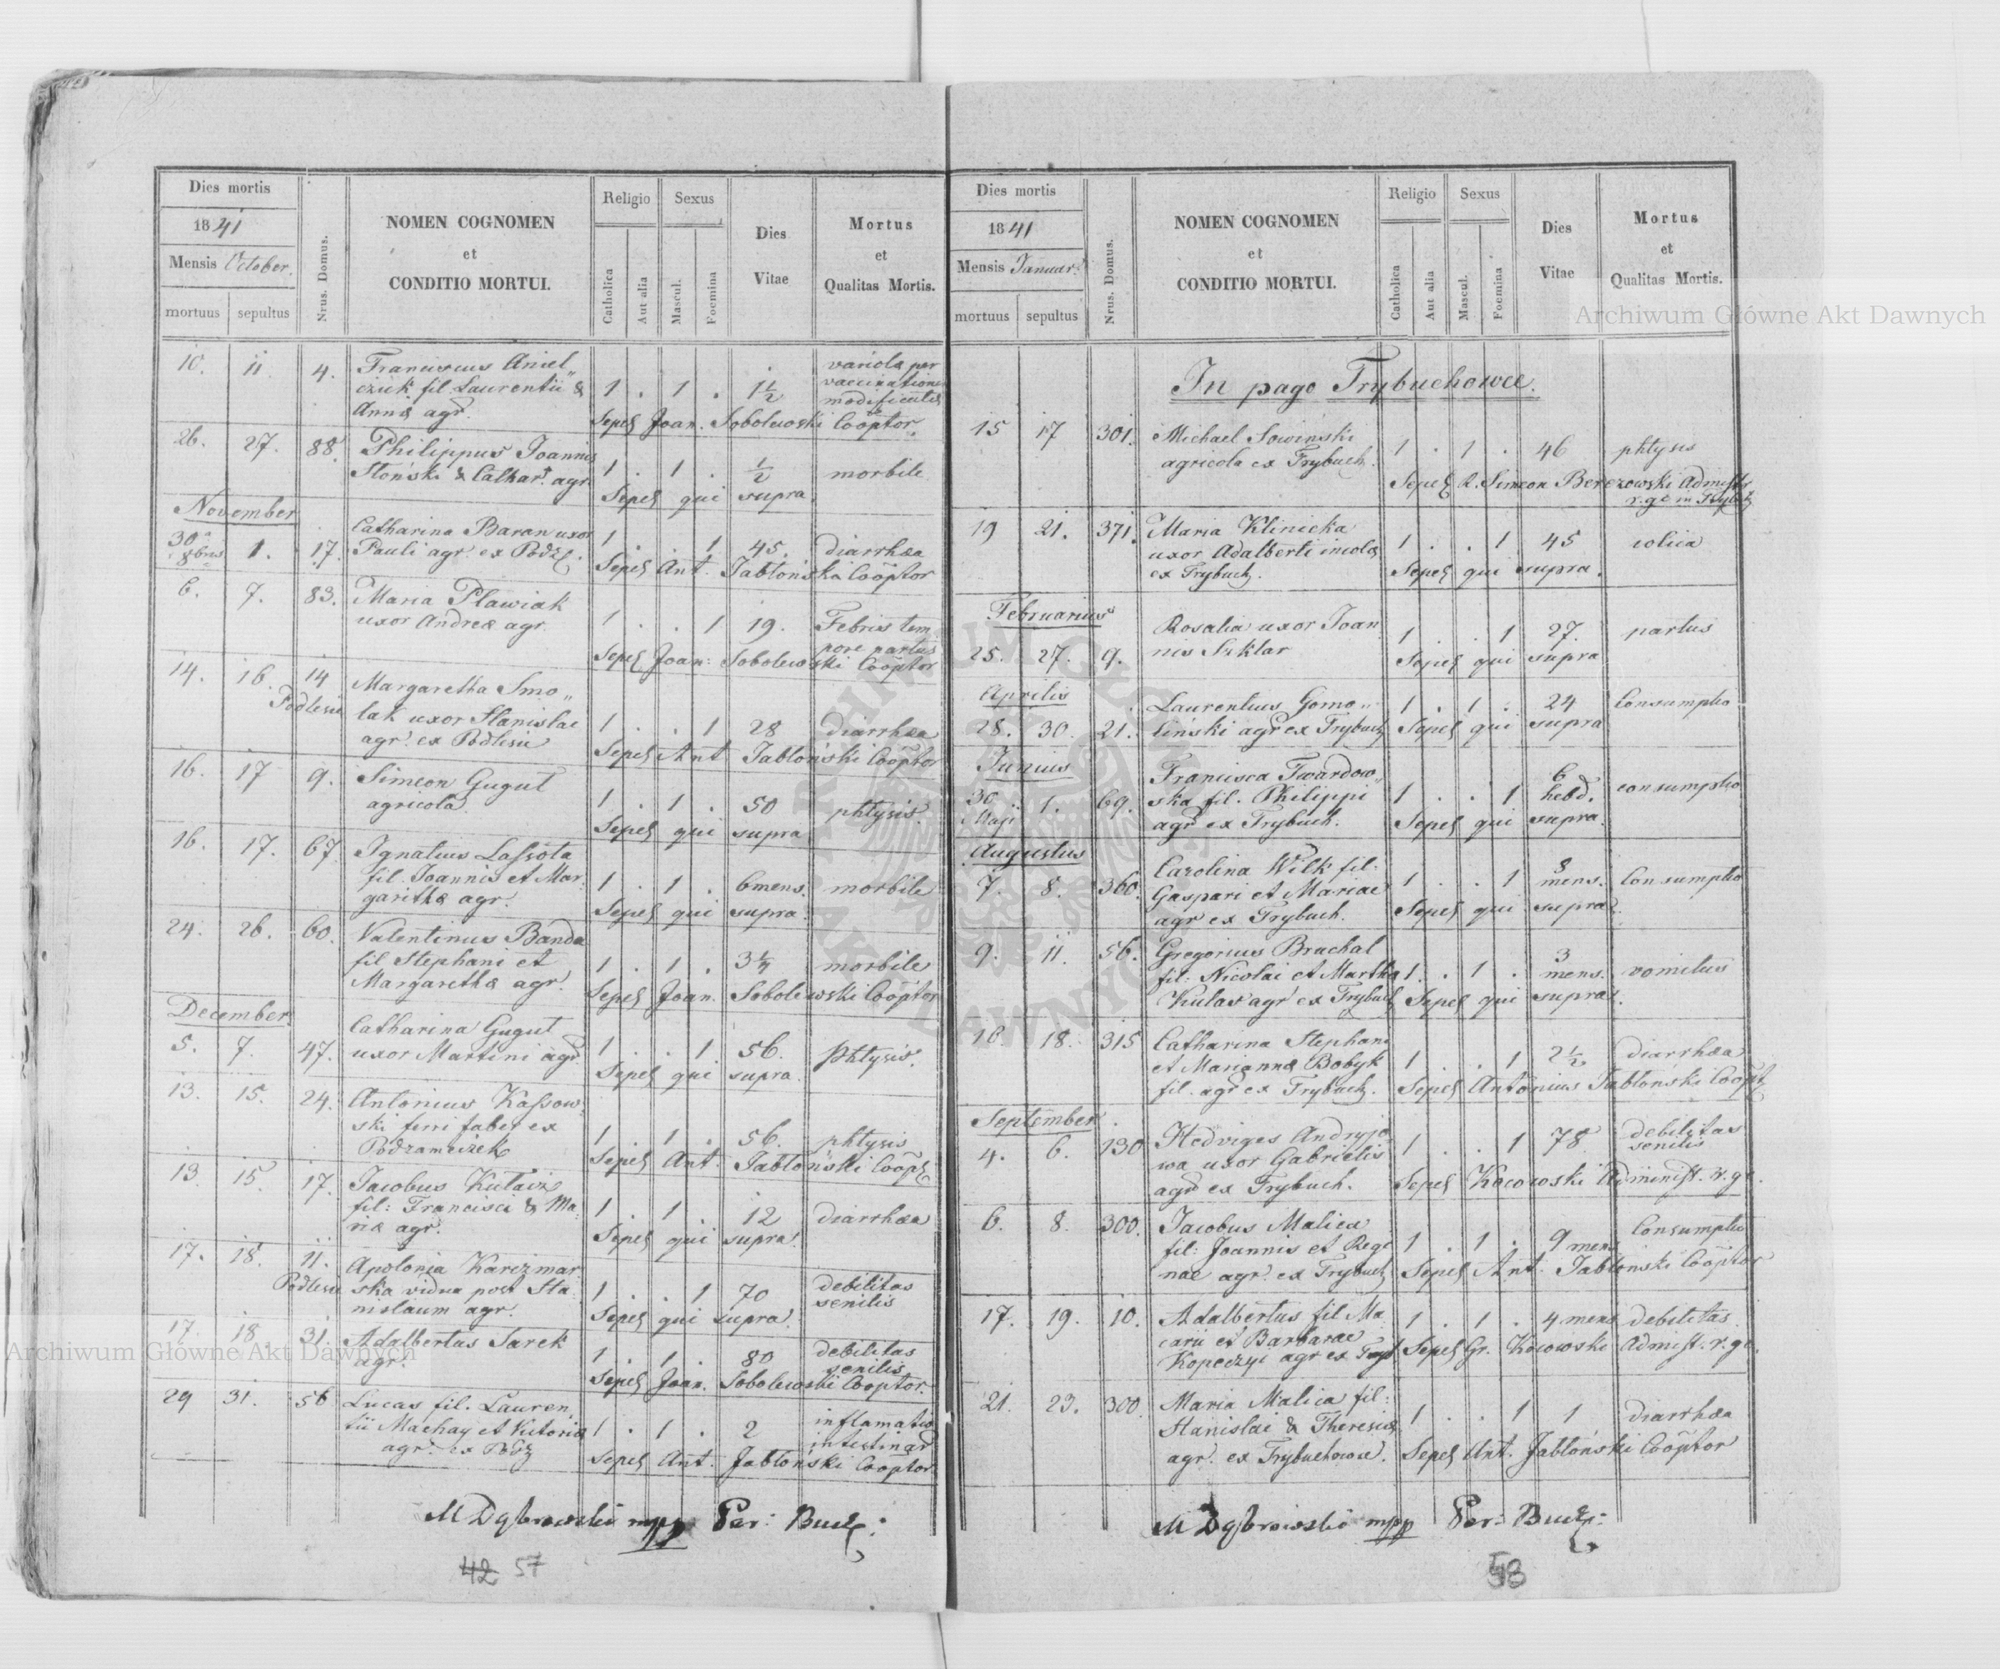 Dies mortis
1841
Mensis October.
mortuus sepultus
Nrus. Domus.
NOMEN COGNOMEN
et
CONDITIO MORTUI.
Religio
Catholica
Aut alia
Sexus
Mascul.
Foemina
Dies
Vitae
Mortus
et
Qualitas Mortis.
10. 11 4. Franciscus Aniel„
czuk fil. Laurentii &
Annæ agr.
1 . 1 . 1½ variolæ per
vaccinatione
modificatæ
Sepel Joan. Sobolewski Cooptor
26. 27. 88. Philippus Joannis
Słoński & Cathar. agr.
1 . 1 . ½ morbile
Sepel qui supra.
November
30
8bris 1. 17. Catharina Baran uxor
Pauli agr. ex Podzę.
1 . . 1 45. diarrhæa
Sepel Ant. Jabłoński Cooptor
6. 7. 83. Maria Pławiak
uxor Andreæ agr.
1 . . 1 19. Febris tem
pore partus
Sepel Joan: Sobolewski Cooptor
14. 16. 14
Podlesie
Margaretha Smo„
lak uxor Stanislai
agr. ex Podlesie
1 . . 1 28 diarrhæa
Sepel Ant Jabłoński Cooptor
16. 17 9. Simeon Gugut
agricola
1 . 1 . 50 phtysis.
Sepel qui supra
16. 17. 67. Ignatius Lassota
fil. Joannis et Mar
garithæ agr.
1 . 1 . 6 mens. morbile
Sepel qui supra
24. 26. 60. Valentinus Banda
fil Stephani et
Margarethæ agr.
1 . 1 . morbile
Sepel Joan. Sobolewski Cooptor
December
5. 7. 47. Catharina Gugut
uxor Martini agr.
1 . . 1. 56. Phtysis.
Sepel qui supra.
13. 15. 24. Antonius Kassow„
ski ferri faber ex
Podzamczek
1 . 1 . 56. phtysis
Sepel Ant. Jabłoński Coopt
13. 15. 17. Jacobus
fil: Francisci & Ma„
riæ agr.
1 . 1 . 12 diarrhæa
Sepel qui supra.
17. 18. 11.
Podlesie
Apolonia Karczmar
ska vidua post Sta
nislaum agr.
1 . . 1 70 debilitas
senilis
Sepel qui supra.
17. 18 31. Adalbertus Sarek
agr.
1 . 1 . 80 debilitas
senilis
Sepel Joan. Sobolewski Cooptor.
29 31. 56 Lucas fil. Lauren„
tii Machay et Victoriæ
agr. ex
1 . 1 . 2 inflamatio
intestinar
Sepel Ant. Jabłoński Cooptor
M Dąbrowski mpp Par: Bucz:
42 57
Dies mortis
1841
Mensis Januar.
mortuus sepultus
Nrus. Domus.
NOMEN COGNOMEN
et
CONDITIO MORTUI.
Religio
Catholica
Aut alia
Sexus
Mascul.
Foemina
Dies
Vitae
Mortus
et
Qualitas Mortis.
In pago Trybuchowce.
15 17 301. Michael Sowiński
agricola ex Trybuch.
1 . 1 . 46 phtysis
Sepel R. Simeon Berezowski Administr
r. gc in Trybch
19 21. 371. Maria Klinicka
uxor Adalberti incolæ
ex Trybuch.
1 . . 1 45 colica
Sepel qui supra.
Februarius
25. 27. 9. Rosalia uxor Joan
nis Szklar
1 . . 1 27. partus
Sepel qui supra
Aprilis
28. 30. 21. Laurentius Gomo„
liński agr ex Trybuch
1 . 1 . 24 Consumptio
Sepel qui supra
Junius
30
Maji 1. 69. Francisca Twardow„
ska fil. Philippi
agr ex Trybuch.
1 . . 1 6
hebd. consumptio
Sepel qui supra.
Augustus
7. 8. 360. Carolina Wilk fil.
Gaspari et Mariae
agr ex Trybuch.
1 . . 1 8
mens. Consumptio
Sepel qui supra.
9. 11. 56. Gregorius Brachal
fil: Nicolai et Martha
Kulas agr ex Trybuch
1 . 1 . 3
mens. vomitus
Sepel qui supra.
16. 18. 315 Catharina Stephani
et Mariannæ Bobyk
fil. agr ex Trybuch.
1 . . 1 2½ diarrhæa
Sepel Antonius Jabłoński Coopt
September
4. 6. 130 Hedviges Andryjo
wa uxor Gabrielis
agr ex Trybuch.
1 . . 1 78 debilitas
senilis
Sepel Kocowski Administ. r. gc.
6. 8. 300. Jacobus Malica
fil: Joannis et Regi
nae agr. ex Trybuch
1 . 1 . 9 mens Consumptio
Sepel Ant. Jabłoński Cooptor
17. 19. 10. Adalbertus fil Ma
carii et Barbarae
Kopeczyi agr ex Tryb
1 . 1 . 4 mens debilitas
Sepel Gr. Kocowski Admist. r. gc.
21. 23. 300. Maria Malica fil:
Stanislai & Theresiæ
agr. ex Trybuchowce.
1 . . 1 1 diarrhæa
Sepel Ant. Jabłoński Cooptor
M Dąbrowski mpp Par: Bucz:
58
Archiwum Główne Akt Dawnych
Archiwum Główne Akt Dawnych
ARCHIWUM GŁÓWNE AKT DAWNYCH